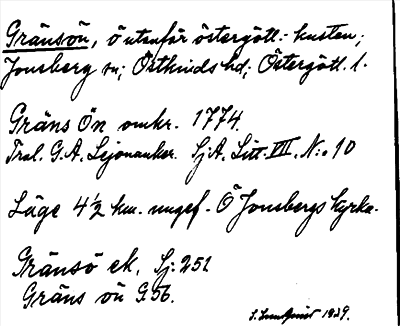 Gränsön, ö utanför östergötl.- kusten;
Jonsberg sn; Östkinds hd; Östergötl. l.
Gräns Ön omkr. 1774.
Trol. G. A. Lejonanker. SjA. Litt. VIII. N:o 10
Läge 4½ km. ungef. Ö Jonsbergs kyrka.
Gränsö ek. Sj. 251
Gräns ön G 56.
S. Lundquist 1929.